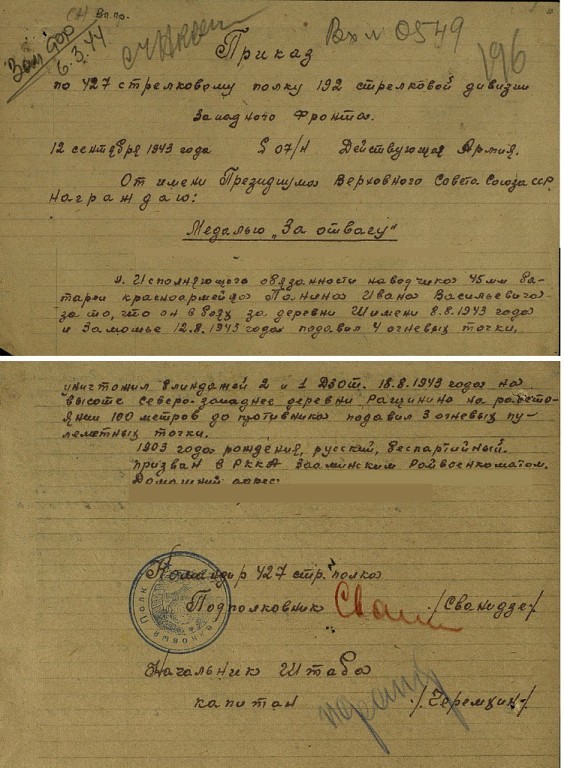 Вп. по.
Зам
6.3.44
Вх № 0549
196
Приказ
по 427 стрелковому полку 192 стрелковой дивизии
Западного Фронта.
12 сентября 1943 года § 07/н Действующая Армия.
От имени Президиума Верховного Совета Союза ССР
награждаю:
Медалью „За отвагу"
1. Исполняющего обязанности наводчика 45мм ба-
тареи красноармейца Панина Ивана Васильевича-
за то, что он в бою за деревни Шимени 8.8.1943 года
и Замошье 12.8.1943 года подавил 4 огневых точки,
уничтожил блиндажей 2 и 1 ДЗОТ. 18.8.1943 года на
высоте Северо-западнее деревни Ращинино на расстоя-
янии 100 метров до противника подавил 3 огневых пу-
леметных точки.
1903 года рождения, русский, беспартийный.
призван в РККА Зааминским Райвоенкоматом.
Домашний адрес:
Командир 427 стр. полка
Подполковник /Сванидзе/
Начальник Штаба
капитан /Черемцин/